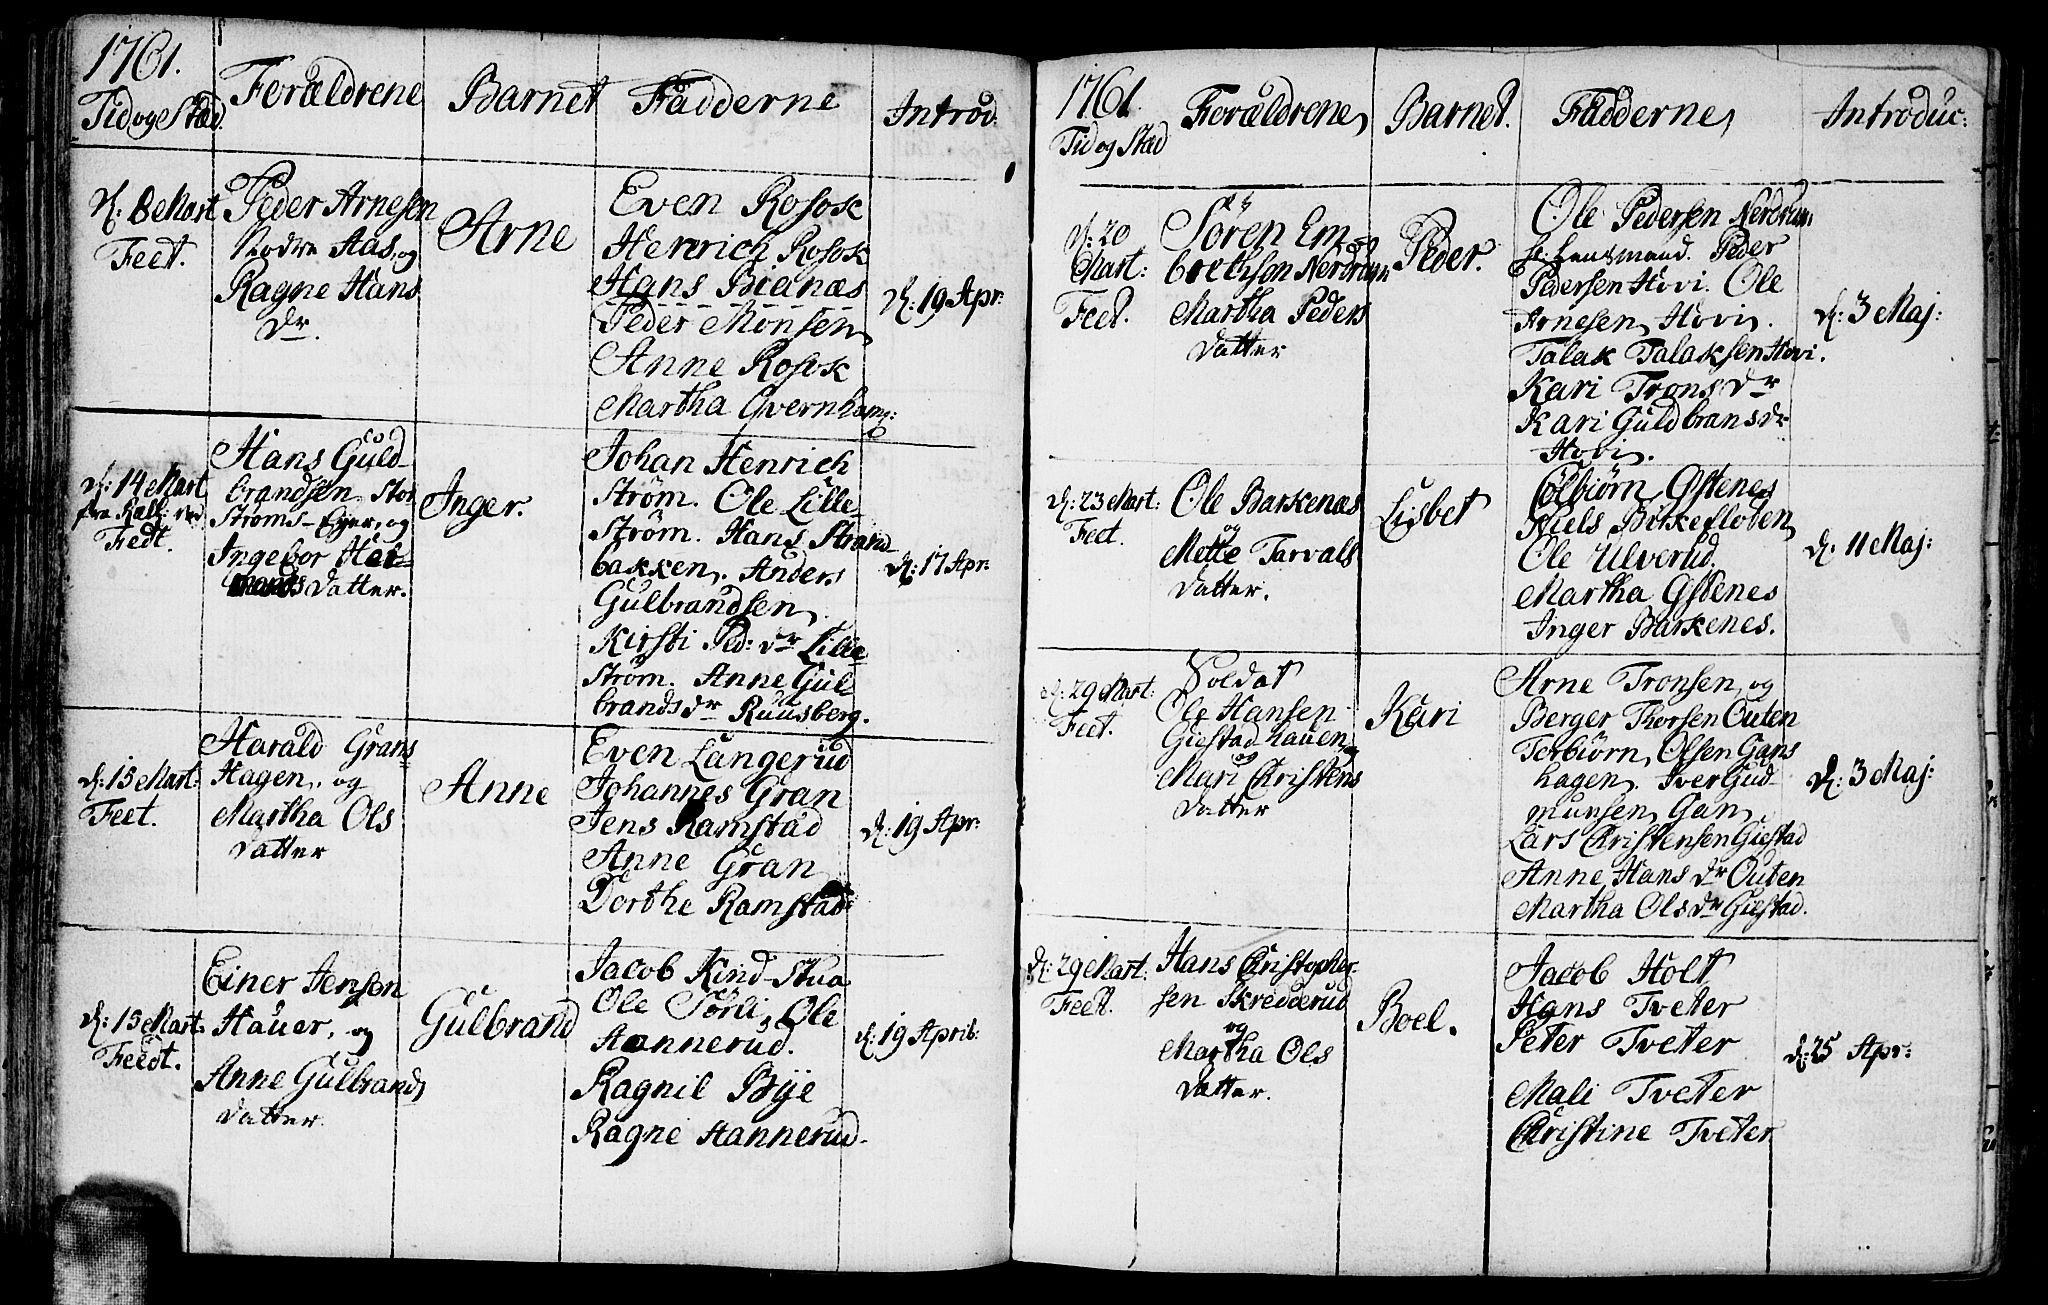 1761.
Tid og Stæd.
Forældrene
Barnet
Fadderne
Introd:
d: 8 Mart
Feet.
Peder Arnesen
Nodre Aas, og
Ragne Hans
dr.
Arne
Even Rosok
Henrich Rosok
Hans Bienæs
Peder Monsen
Anne Rosok
Martha Qvernhamg:
d: 19 Apr:
d: 14 Mart
fra Kall: ved
Fedt.
Hans Guld-
brandsen Stor
Strøms-Eyer, og
Ingebor Hel-
datter.
Inger.
Johan Henrich
Strøm. Ole Lille-
Strøm. Hans Strand-
bakken. Anders
Gulbrandsen
Kirsti Ped: dr Lille
Strøm. Anne Gul
brands dr Ruusberg.
d: 17 Apr:
d: 15 Mart:
Feet.
Harald Grans
Hagen, og
Martha Ols
datter
Anne
Even Langerud
Johannes Gran
Jens Ramstad
Anne Gran
Dorthe Ramstad
d: 19 Apr:
d: 15 Mart:
Feedt.
Einer Jensen
Hauer, og
Anne Gulbrands
datter.
Gulbrand
Jacob Kind-Skua
Ole Sørli, Ole
Hannerud.
Ragnil Bye
Ragne Hannerud.
d: 19 April:
1761.
Tid og Stæd
Forældrene
Barnet.
Fadderne
Introduc:
d: 20
Mart:
Feet.
Søren Em-
brethsen Nerdrum og
Martha Peders
datter
Peder.
Ole Pedersen Nerdrum
Lensmand. Peder
Pedersen Hovi. Ole
Arnesen Hovi.
Talak Talaksen Hovi.
Kari Trons dr
Kari Guldbrans dr
Hovi.
d: 3 Maj:
d: 23 Mart:
Feet.
Ole Barkenæs
og
Mette Tarvals
datter.
Lisbet
Colbiørn Gstenes
Niels Birkefloten
Ole Ulverud
Martha Gstenes
Inger Barkenes.
d: 11 Maj:
d: 29 Mart:
Feet.
Soldat
Ole Hansen
Giestad hauen
og
Mari Christens
datter
Kari
Arne Tronsen og
Berger Thorsen Outen
Torbiørn Olsen Gans
hagen. Iver Gud-
munsen Gan
Lars Christensen Giestad
Anne Hans dr Outen
Martha Ols dr Giestad.
d: 3 Maj:
d: 29 Mart:
Feet.
Hans Christopher-
sen Skredderud
og
Martha Ols
datter.
Boel.
Jacob Holt
Hans Tveter
Peter Tveter
Mali Tveter
Christine Tveter
d: 25 Apr: